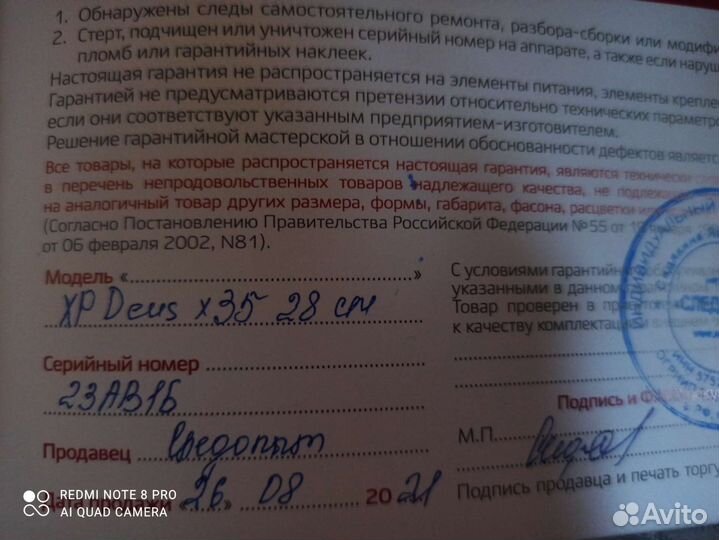 1. Обнаружены следы самостоятельного ремонта, разбора-сборки или модифи
2. Стерт, подчищен или уничтожен серийный номер на аппарате, а также если наруш
пломб или гарантийных наклеек.
Настоящая гарантия не распространяется на элементы питания, элементы крепле
Гарантией не предусматриваются претензии относительно технических параметро
если они соответствуют указанным предприятием-изготовителем.
Решение гарантийной мастерской в отношении обоснованности дефектов являетс
Все товары, на которые распространяется настоящая гарантия, являются технически
в перечень непродовольственных товаров надлежащего качества, не подлежа
на аналогичный товар других размера, формы, габарита, фасона, расцветки или
(Согласно Постановлению Правительства Российской Федерации №55 от 19
от 06 февраля 2002, N81).
Модель « »
XP Deus x35 28 см
Серийный номер
23АВ1Б
Продавец Следопыт
Дата продажи «26» 08 2021
С условиями гарантийно
указанными в данном гарантийном
Товар проверен в
к качеству комплектации внешнем
Подпись и
М.П.
Подпись продавца и печать торг
ИНДИВИДУАЛЬНЫЙ
«СЛЕД
ИНН 575
REDMI NOTE 8 PRO
AI QUAD CAMERA
Avito